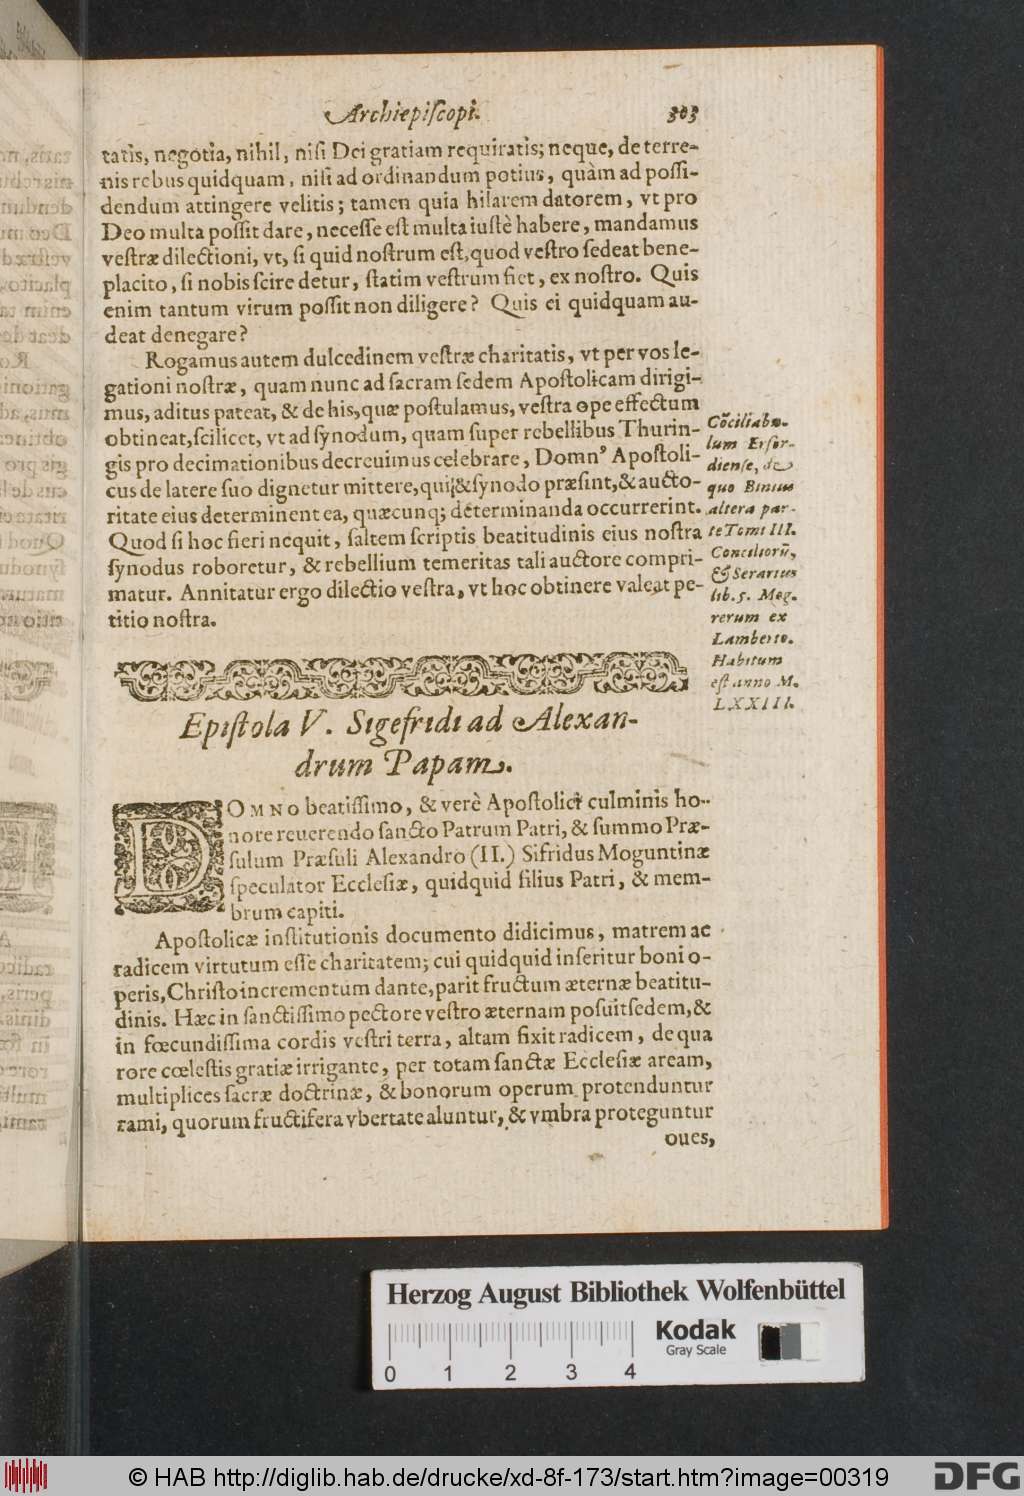 Archiepiſcopi. 303
tatis, negotia, nihil, niſi Dei gratiam requiratis; neque, de terre-
nis rebus quidquam, niſi ad ordinandum potius, quàm ad poſſi-
dendum attingere velitis; tamen quia hilarem datorem, vt pro
Deo multa poſſit dare, neceſſe eſt multa iuſtè habere, mandamus
veſtræ dilectioni, vt, ſi quid noſtrum eſt, quod veſtro ſedeat bene-
placito, ſi nobis ſcire detur, ſtatim veſtrum fiet, ex noſtro. Quis
enim tantum virum poſſit non diligere? Quis ei quidquam au-
deat denegare?
Rogamus autem dulcedinem veſtræ charitatis, vt per vos le-
gationi noſtræ, quam nunc ad ſacram ſedem Apoſtolicam dirigi-
mus, aditus pateat, & de his, quæ poſtulamus, veſtra ope effectum
obtineat, ſcilicet, vt ad ſynodum, quam ſuper rebellibus Thurin-
gis pro decimationibus decreuimus celebrare, Domnꝰ Apoſtoli-
cus de latere ſuo dignetur mittere, qui & ſynodo præſint, & aucto-
ritate eius determinent ea, quæcunq; determinanda occurrerint.
Quod ſi hoc fieri nequit, ſaltem ſcriptis beatitudinis eius noſtra
ſynodus roboretur, & rebellium temeritas tali auctore compri-
matur. Annitatur ergo dilectio veſtra, vt hoc obtinere valeat pe-
titio noſtra.
Cōciliabu-
lum Erfor-
dienſe, de
quo Binius
altera par-
te Tomi III.
Conciliorū,
& Serarius
lib. 5. Mog.
rerum ex
Lamberto.
Habitum
eſt anno M.
LXXIII.
Epiſtola V. Sigefridi ad Alexan-
drum Papam.
DOMNO beatiſſimo, & verè Apoſtolici culminis ho-
nore reuerendo ſancto Patrum Patri, & ſummo Præ-
ſulum Præſuli Alexandro (II.) Sifridus Moguntinæ
ſpeculator Eccleſiæ, quidquid filius Patri, & mem-
brum capiti.
Apoſtolicæ inſtitutionis documento didicimus, matrem ac
radicem virtutum eſſe charitatem; cui quidquid inſeritur boni o-
peris, Chriſto incrementum dante, parit fructum æternæ beatitu-
dinis. Hæc in ſanctiſſimo pectore veſtro æternam poſuit ſedem, &
in fœcundiſſima cordis veſtri terra, altam fixit radicem, de qua
rore cœleſtis gratiæ irrigante, per totam ſanctæ Eccleſiæ aream,
multiplices ſacræ doctrinæ, & bonorum operum protenduntur
rami, quorum fructifera vbertate aluntur, & vmbra proteguntur
oues,
Herzog August Bibliothek Wolfenbüttel
Kodak
Gray Scale
0 1 2 3 4
© HAB http://diglib.hab.de/drucke/xd-8f-173/start.htm?image=00319
DFG